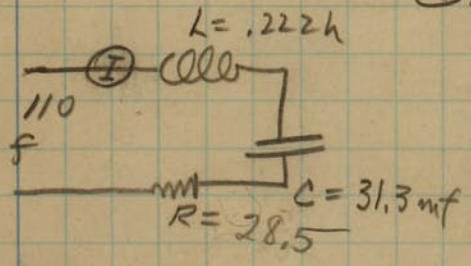 L = .222h
I
110
f
C = 31.3 mf
R = 28.5